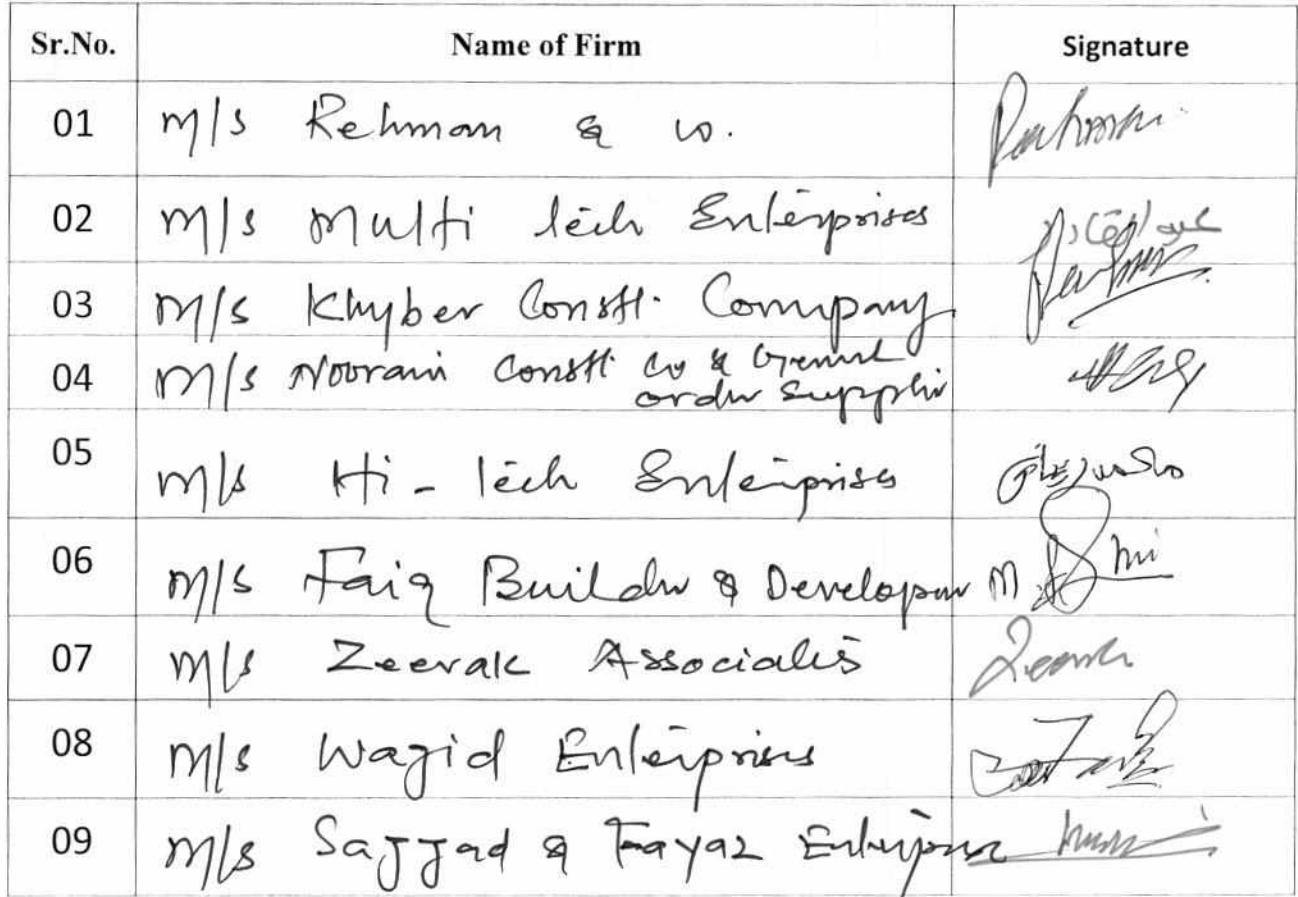 Sr.No. Name of Firm Signature
01 M/s Rehman & co.
02 M/s Multi Tech Enterprises
03 M/s Khyber Constt. Company
04 M/s Noorani Constt Co & Genral
order supplier
05 M/s Hi-Tech Enterprises
06 M/s Faiq Builder & Developer
07 M/s Zeerak Associates
08 M/s Wajid Enterprises
09 M/s Sajjad & Fayaz Enterprises